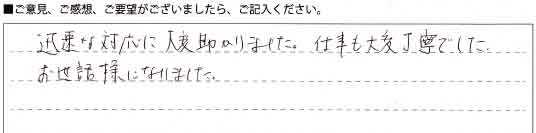 ■ご意見、ご感想、ご要望がございましたら、ご記入ください。
迅速な対応に大変助かりました。仕事も大変丁寧でした。
お世話様になりました。